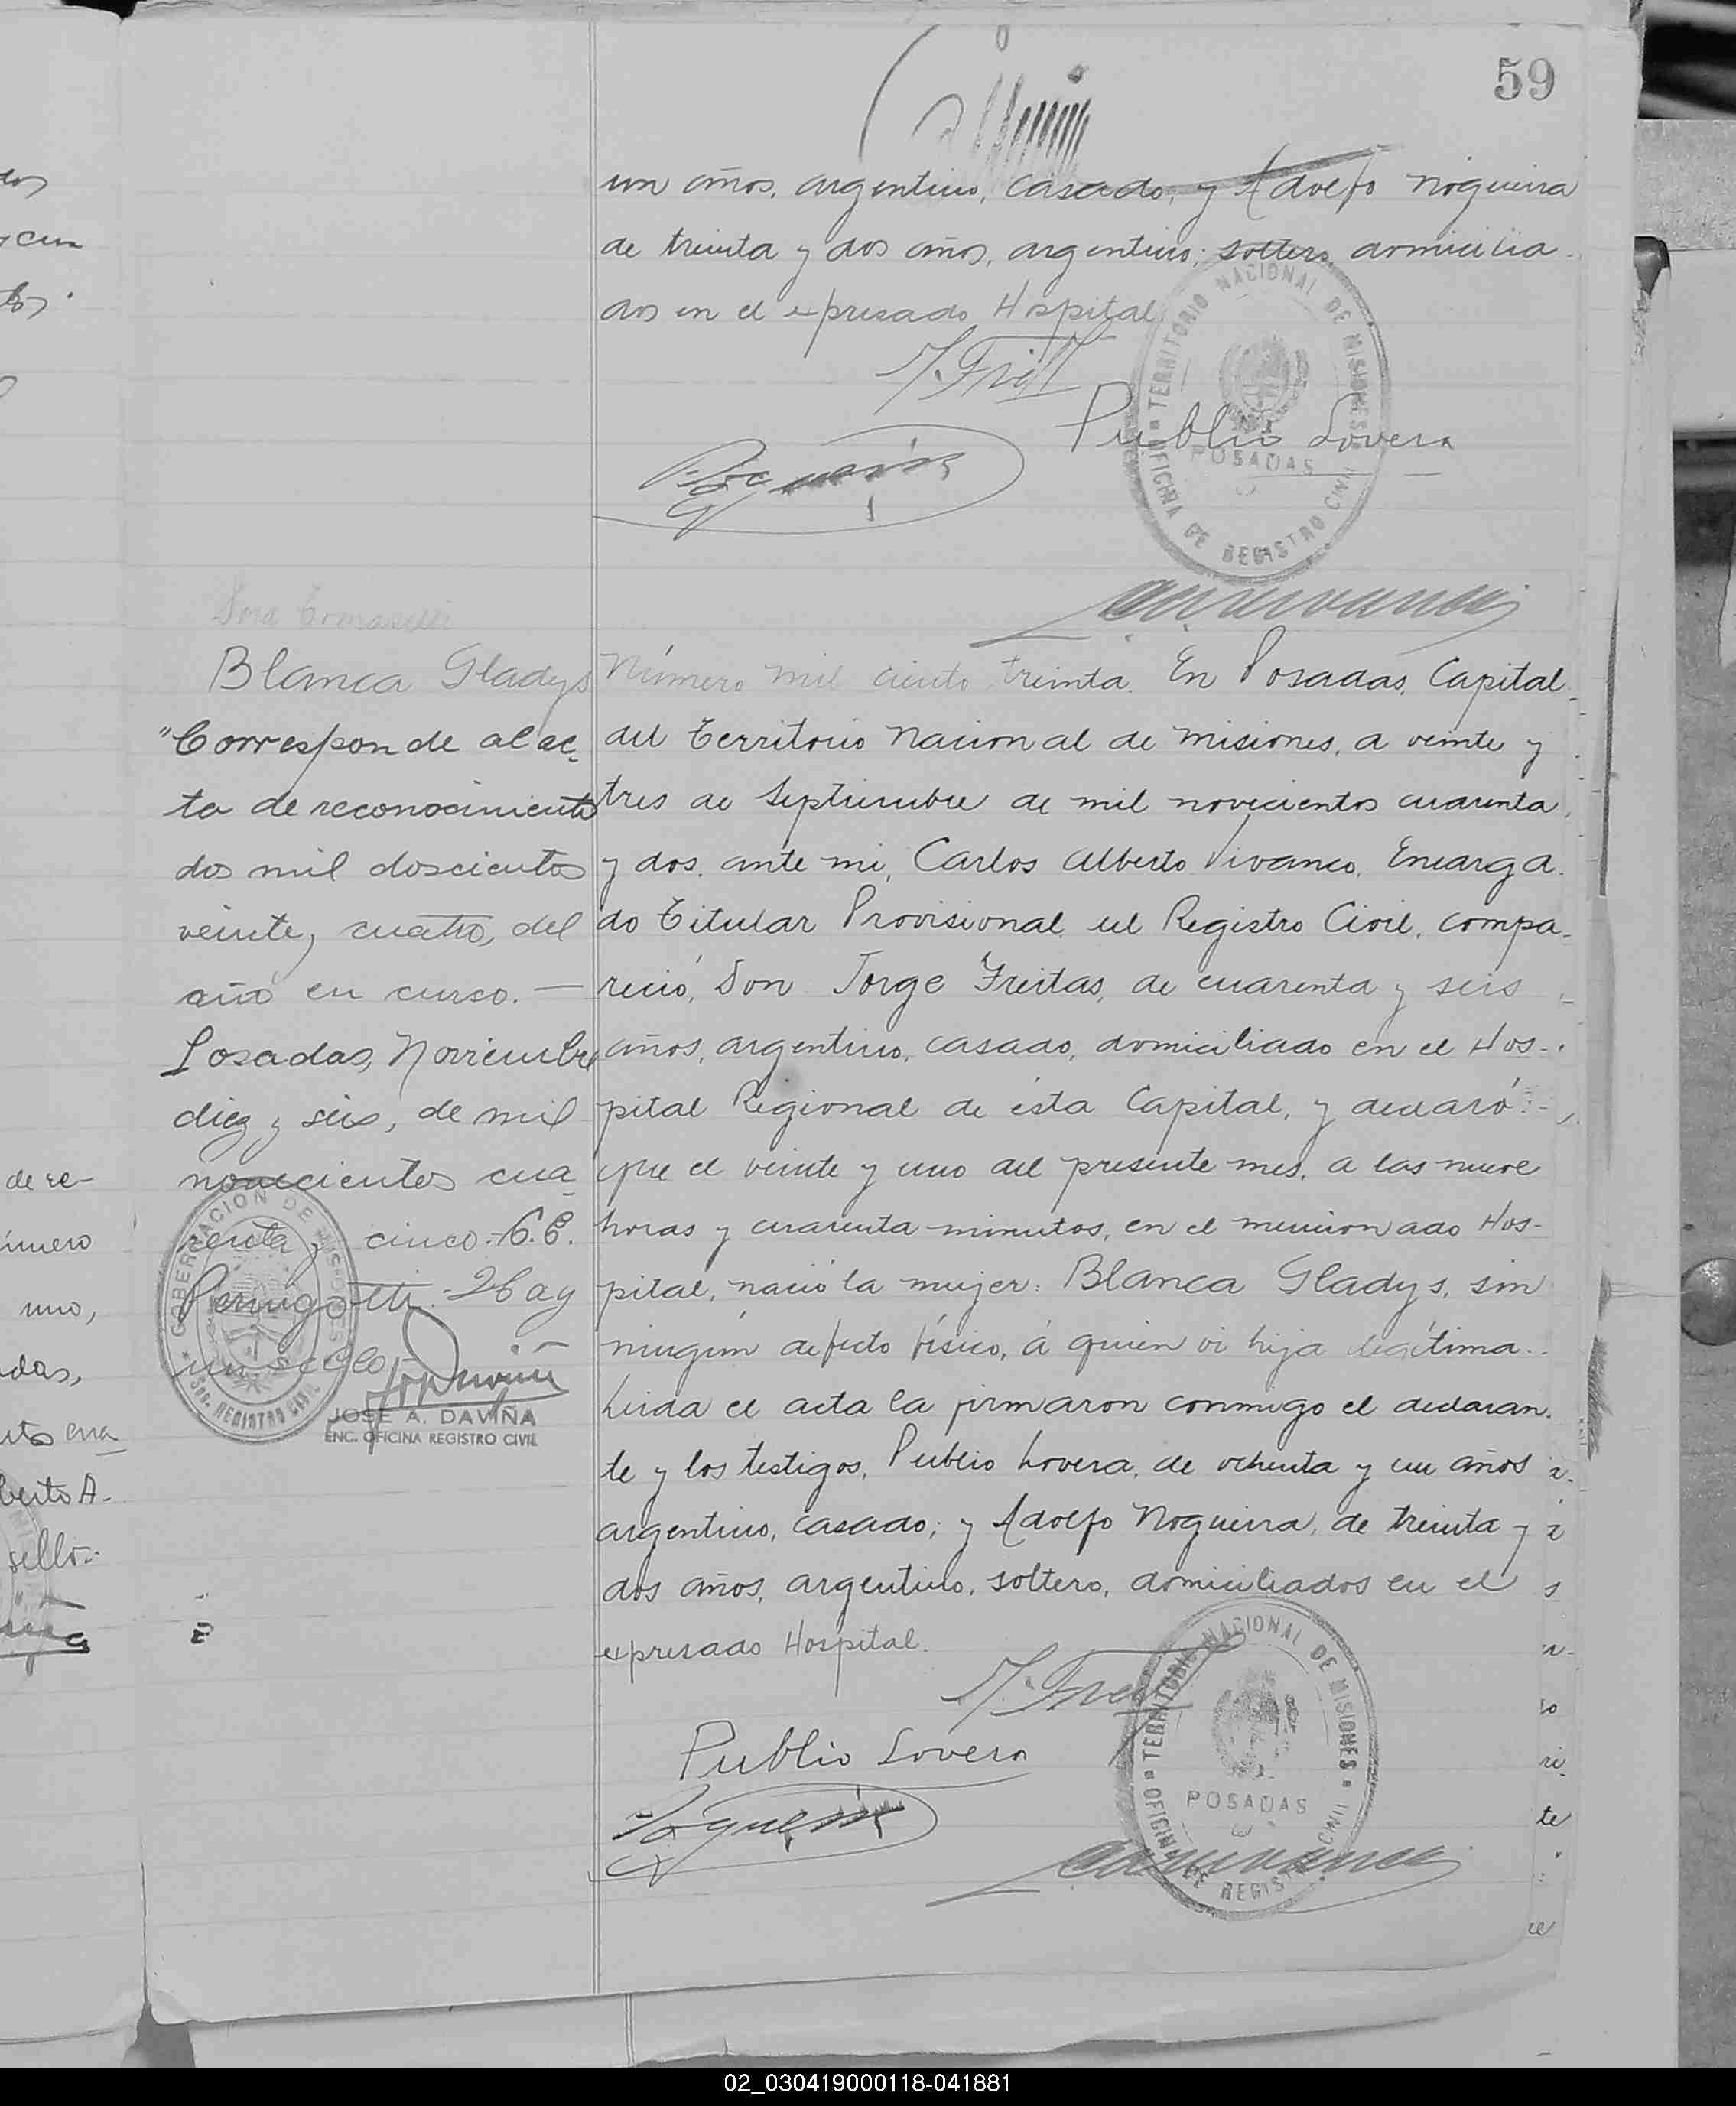 59
un años, argentino, casado, y Adolfo Nogueira
de treinta y dos años, argentino, soltero, domicilia-
dos en el expresado Hospital
TERRITORIO NACIONAL DE MISIONES
POSADAS
OFICINA DE REGISTRO CIVIL
Publio Lovera
Blanca Gladys
"Corresponde al ac-
ta de reconocimiento
dos mil doscientos
veinte y cuatro, del
año en curso. —
Posadas, Noviembre
diez y seis, de mil
novecientos cua-
renta y cinco.- C.E.
Perugotti.- Hay
un sello.-
GOBERNACION DE MISIONES
REGISTRO CIVIL
JOSE A. DAVIÑA
ENC. OFICINA REGISTRO CIVIL
Número mil ciento treinta. En Posadas, Capital
del Territorio Nacional de Misiones, a veinte y
tres de Septiembre de mil novecientos cuarenta
y dos, ante mi, Carlos Alberto Vivanco, Encarga-
do Titular Provisional del Registro Civil, compa-
reció, Don Jorge Freitas, de cuarenta y seis
años, argentino, casado, domiciliado en el Hos-
pital Regional de ésta Capital, y declaró:-
que el veinte y uno del presente mes, a las nueve
horas y cuarenta minutos, en el mencionado Hos-
pital, nació la mujer: Blanca Gladys, sin
ningún defecto físico, á quien vi hija legítima.
Leida el acta la firmaron conmigo el declaran-
te y los testigos, Publio Lovera, de ochenta y un años
argentino, casado; y Adolfo Nogueira, de treinta y
dos años, argentino, soltero, domiciliados en el
expresado Hospital.
TERRITORIO NACIONAL DE MISIONES
POSADAS
OFICINA DE REGISTRO CIVIL
Publio Lovera
de re-
uno,
sello.-
te
02_030419000118-041881